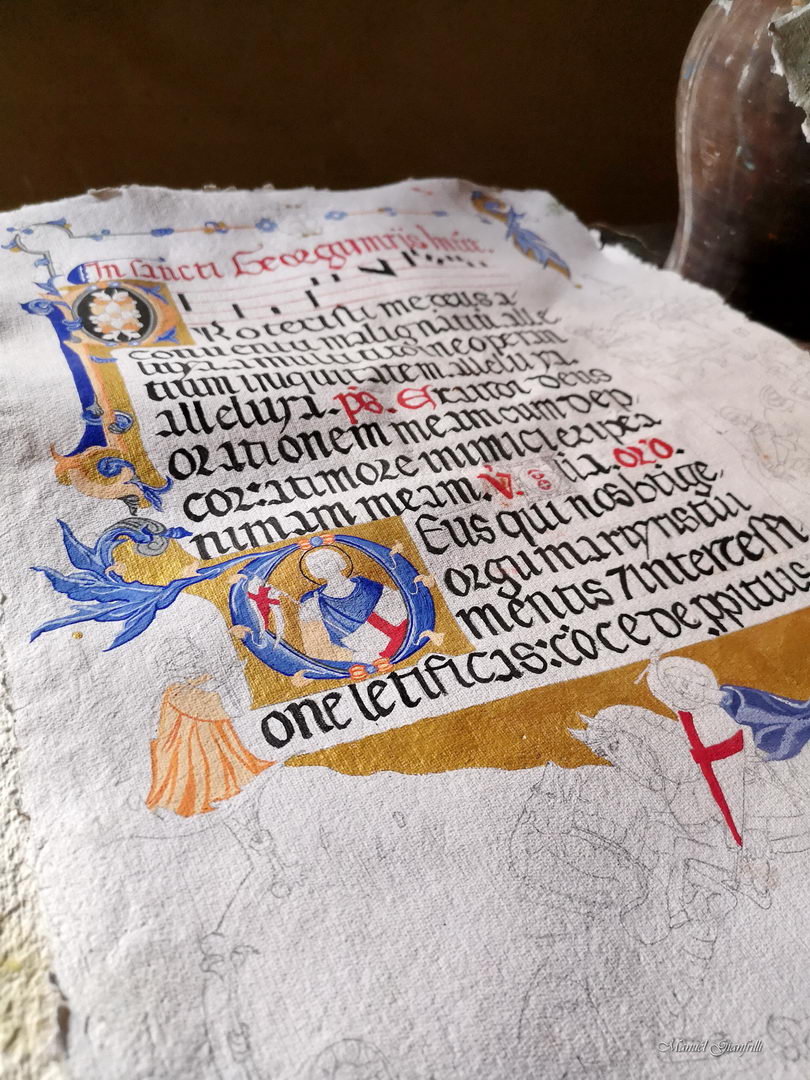 In sancti Georgii mris
Rotexisti me deus a
conventu malignantiū alle
luya. a multitudine operan
tium iniquitatem. alleluya.
alleluya. ps. Exaudi deus
orationem meam cum dep
cor: a timore inimici eripe a
nimam meam. V. ia. oro.
Eus qui nos btī ge
orgii martyris tui
mentis 7 intercessi
one letificas: cōcede ppitius
Manuel Gianfrilli